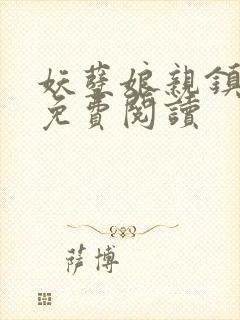 妖孽娘親鎮
免費閱讀
薩博